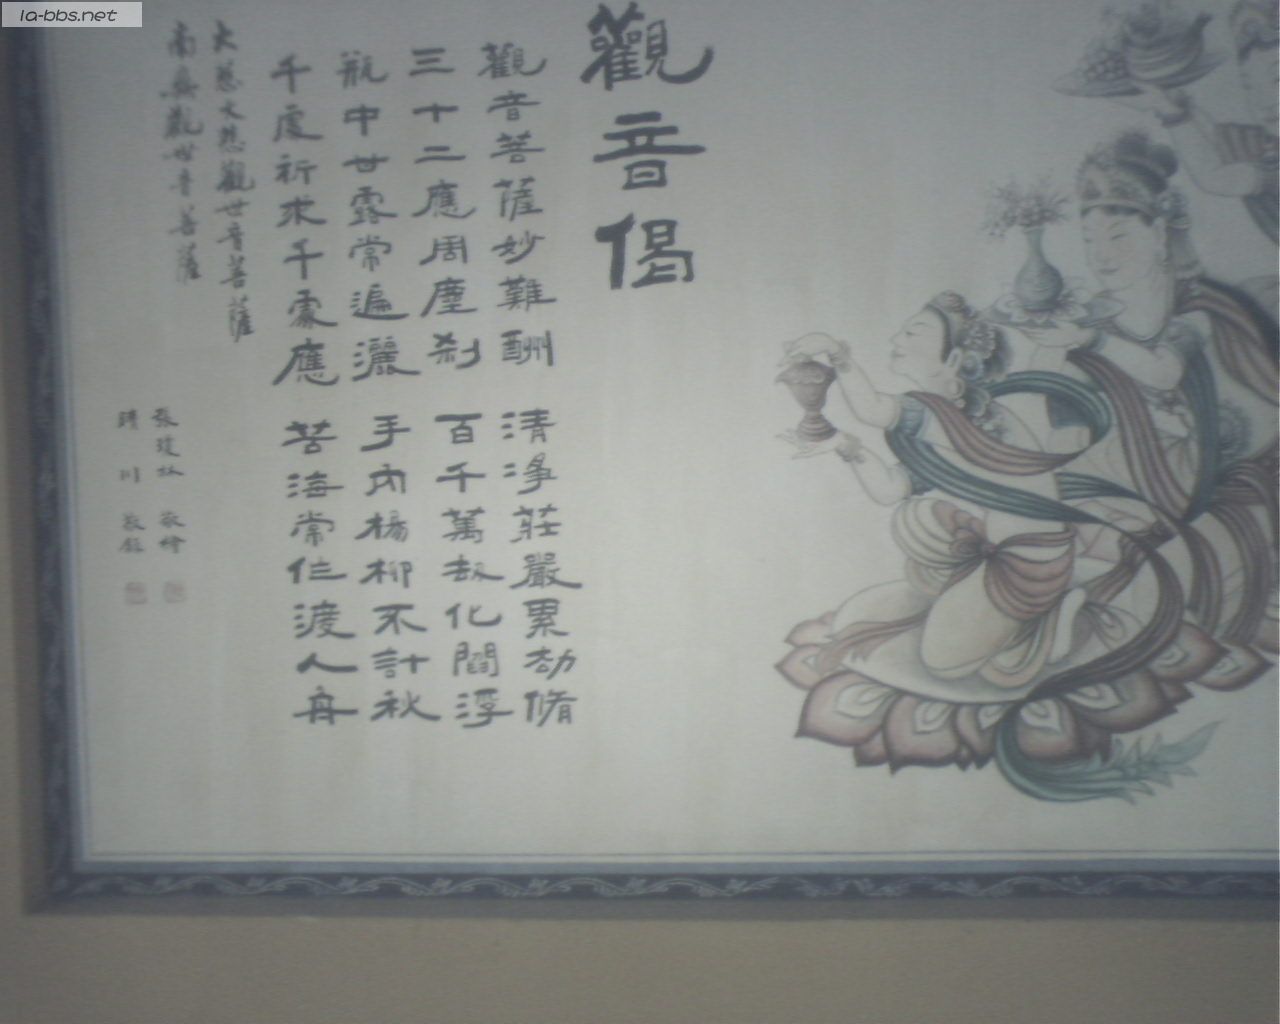 la-bbs.net
觀音偈
觀音菩薩妙難酬
清淨莊嚴累劫脩
三十二應周塵刹
百千萬劫化閻浮
瓶中甘露常遍灑
手內楊柳不計秋
千處祈求千處應
苦海常作渡人舟
大慈大悲觀世音菩薩
南無觀世音菩薩
敬繪
晴川 敬錄